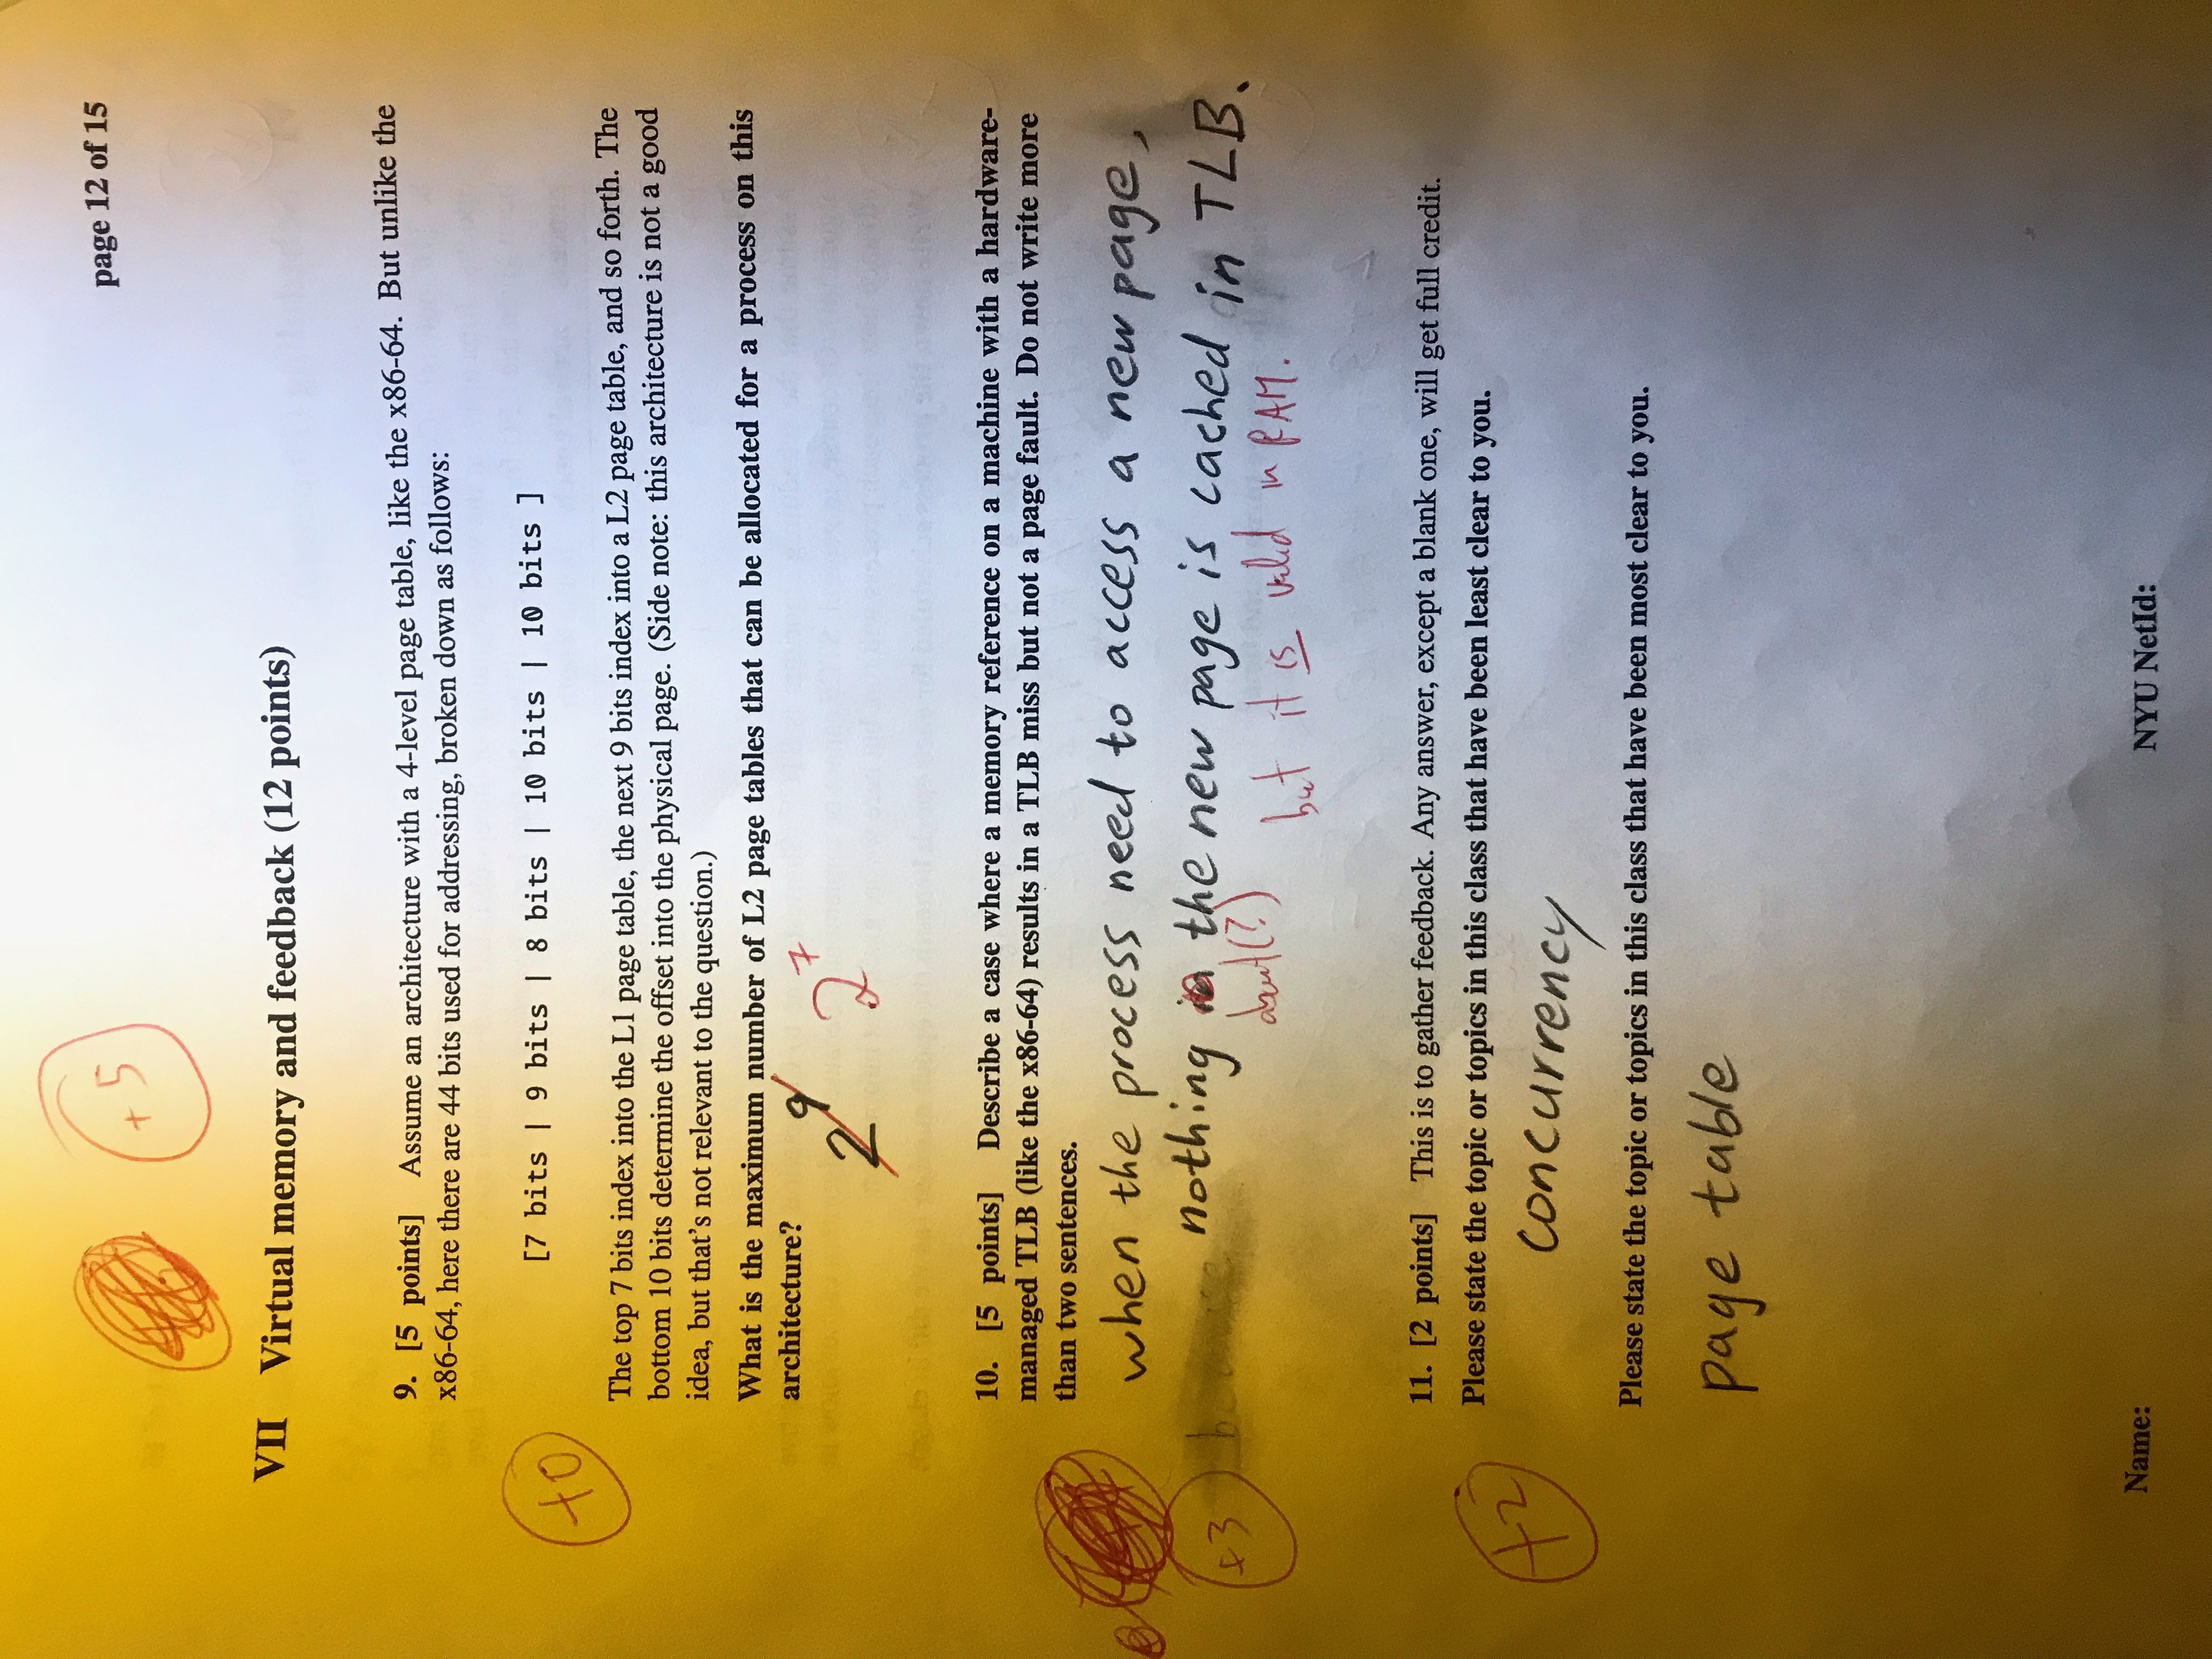 +5
page 12 of 15
VII Virtual memory and feedback (12 points)
9. [5 points] Assume an architecture with a 4-level page table, like the x86-64. But unlike the
x86-64, here there are 44 bits used for addressing, broken down as follows:
[7 bits | 9 bits | 8 bits | 10 bits | 10 bits ]
+0
The top 7 bits index into the L1 page table, the next 9 bits index into a L2 page table, and so forth. The
bottom 10 bits determine the offset into the physical page. (Side note: this architecture is not a good
idea, but that's not relevant to the question.)
What is the maximum number of L2 page tables that can be allocated for a process on this
architecture?
2⁹ 2⁷
10. [5 points] Describe a case where a memory reference on a machine with a hardware-
managed TLB (like the x86-64) results in a TLB miss but not a page fault. Do not write more
than two sentences.
when the process need to access a new page,
+3 nothing in the new page is cached in TLB.
about(?) but it is valid in RAM.
11. [2 points] This is to gather feedback. Any answer, except a blank one, will get full credit.
Please state the topic or topics in this class that have been least clear to you.
+2
concurrency
Please state the topic or topics in this class that have been most clear to you.
page table
Name: NYU NetId: